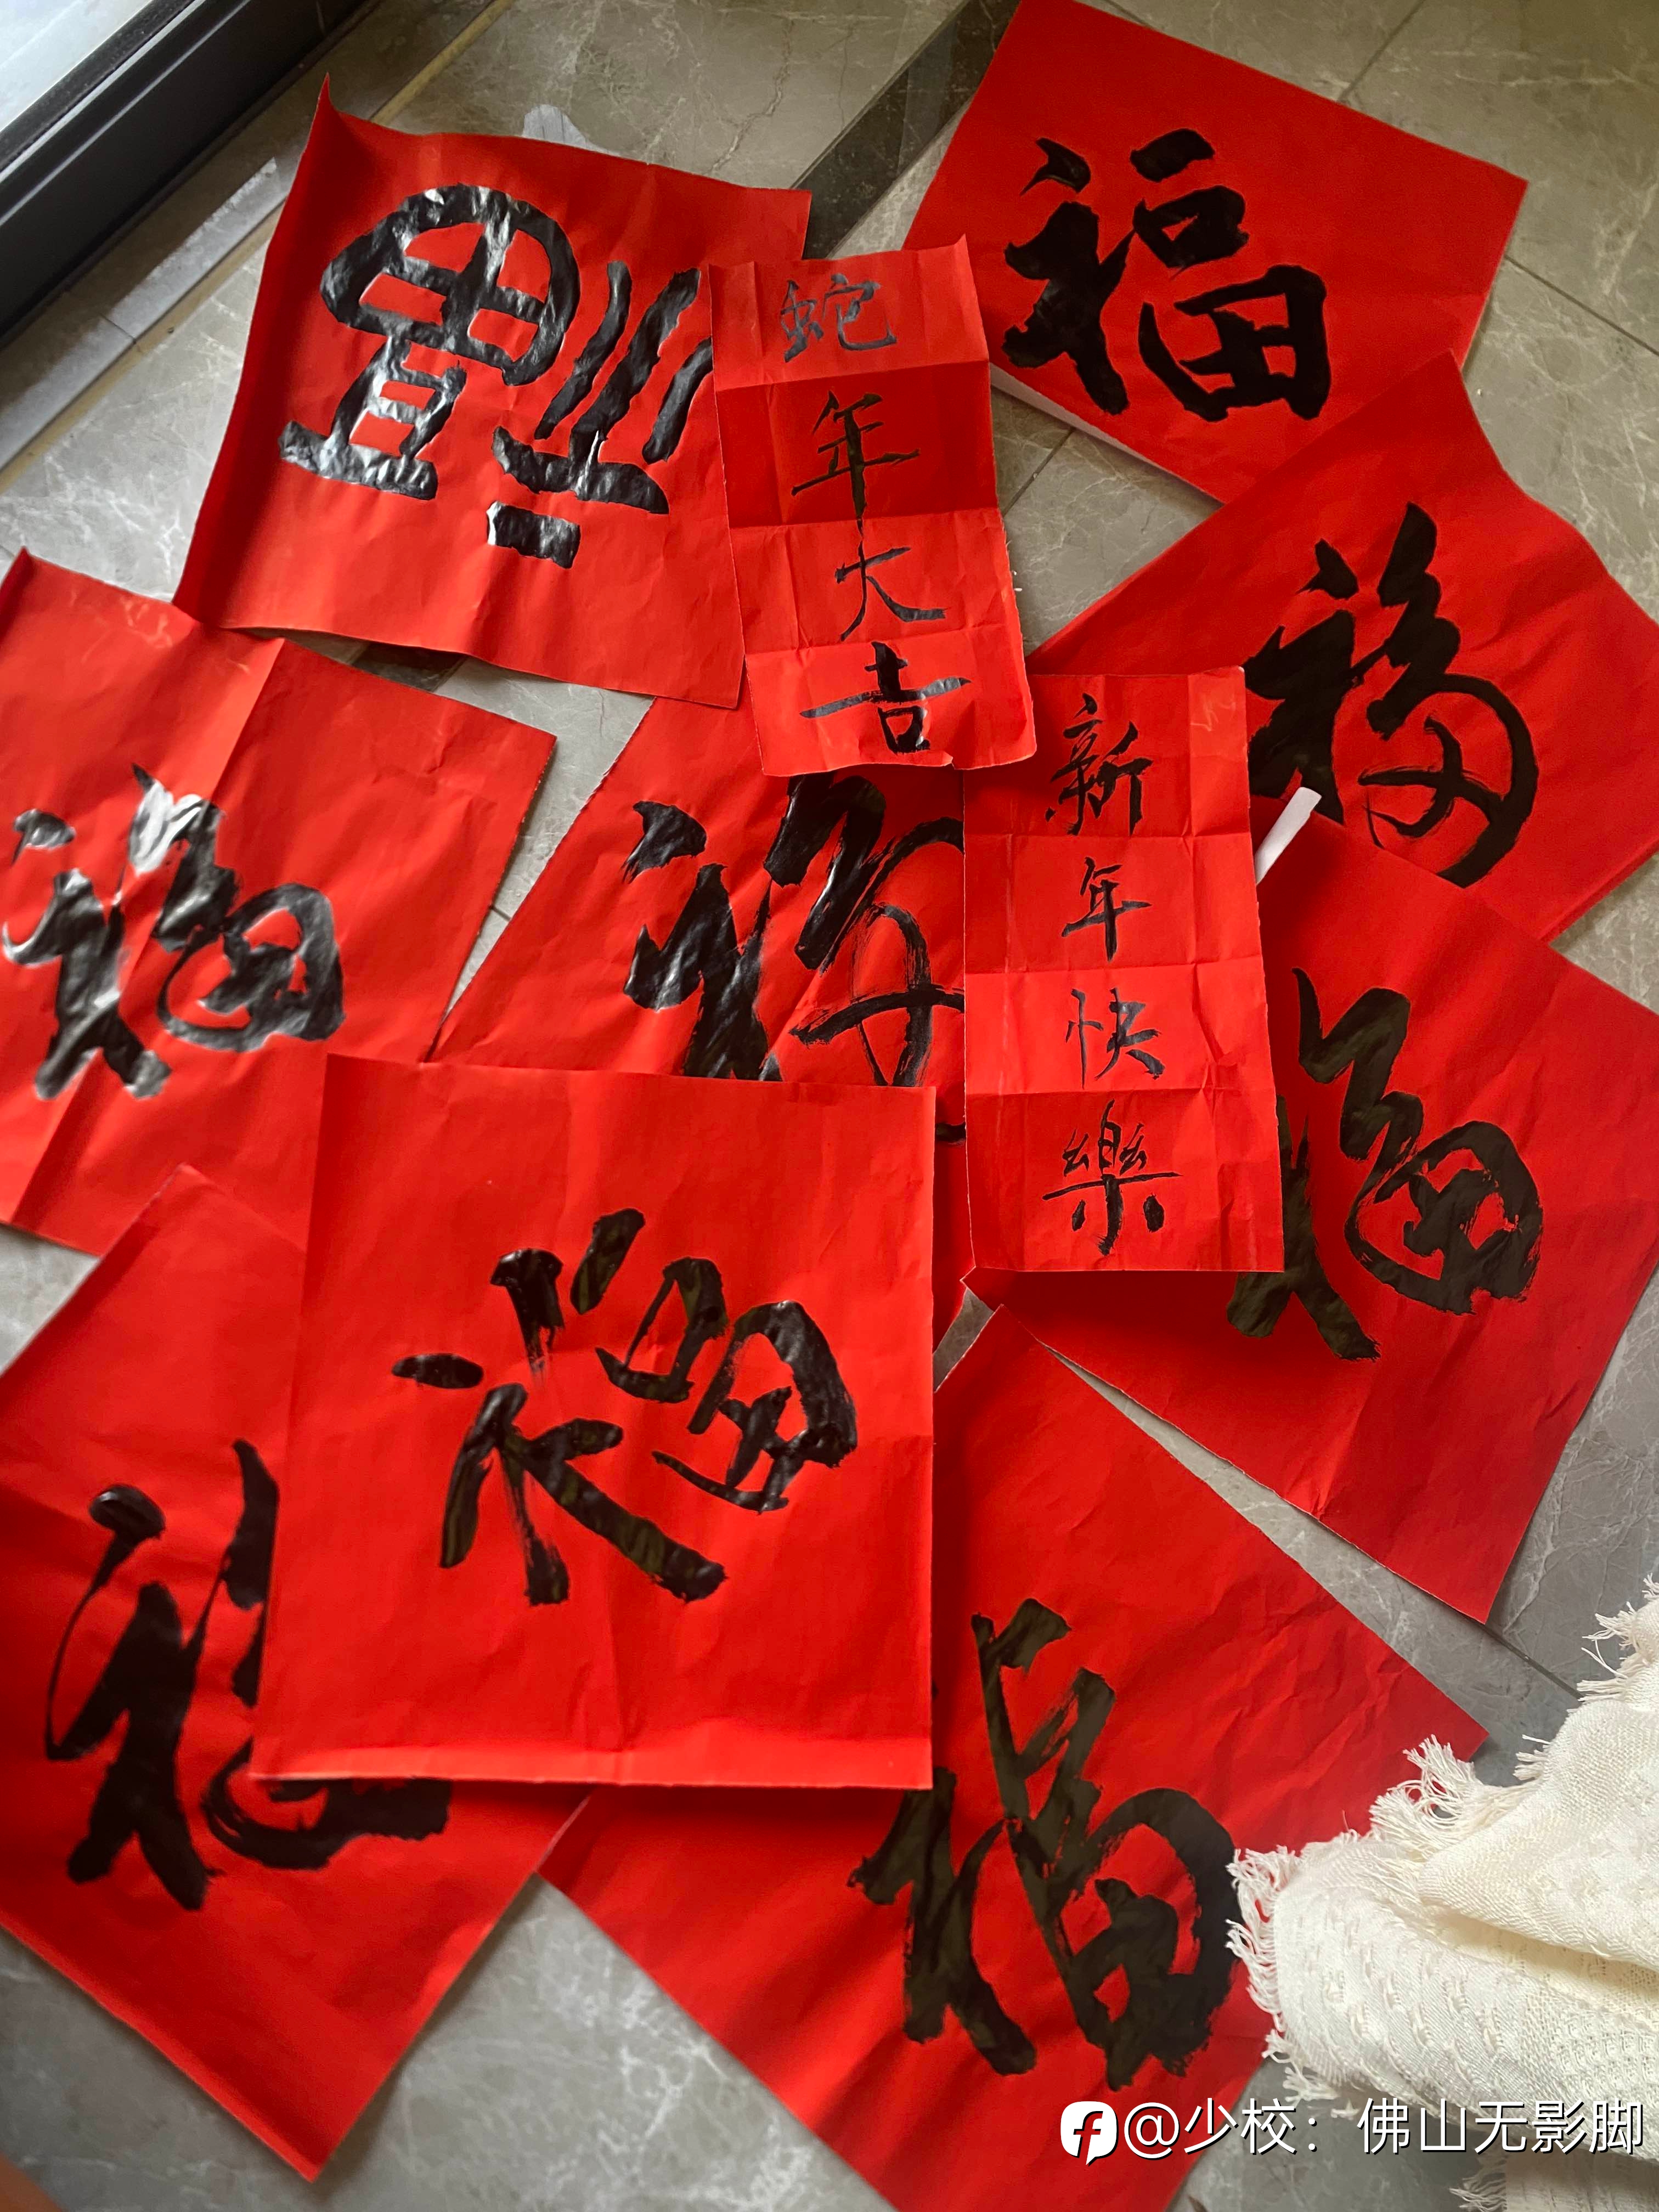 福
福
蛇年大吉
福
福
福
新年快樂
福
福
福
福
@少校：佛山无影脚